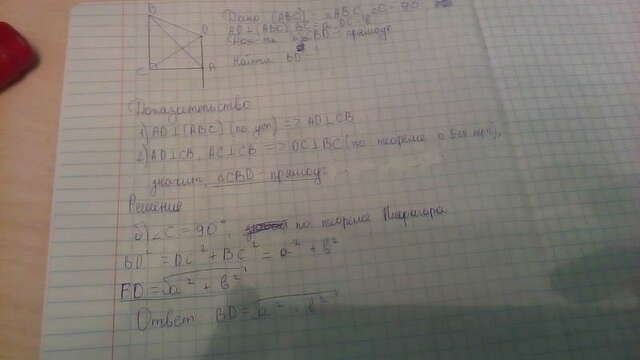 B
D
C
A
Дано (ABC), △ABC, ∠C = 90°
AD ⊥ (ABC) BC = DC
△CBD - прямоуг
Найти BD
Доказательство
1) AD ⊥ (ABC) (по усл) => AD ⊥ CB
2) AD ⊥ CB, AC ⊥ CB => DC ⊥ BC (по теореме о
значит, △CBD - прямоуг
Решение
б) ∠C = 90°, по теореме Пифагора
BD² = DC² + BC² = a² + b²
BD = √a² + b²
Ответ BD = √a² + b²